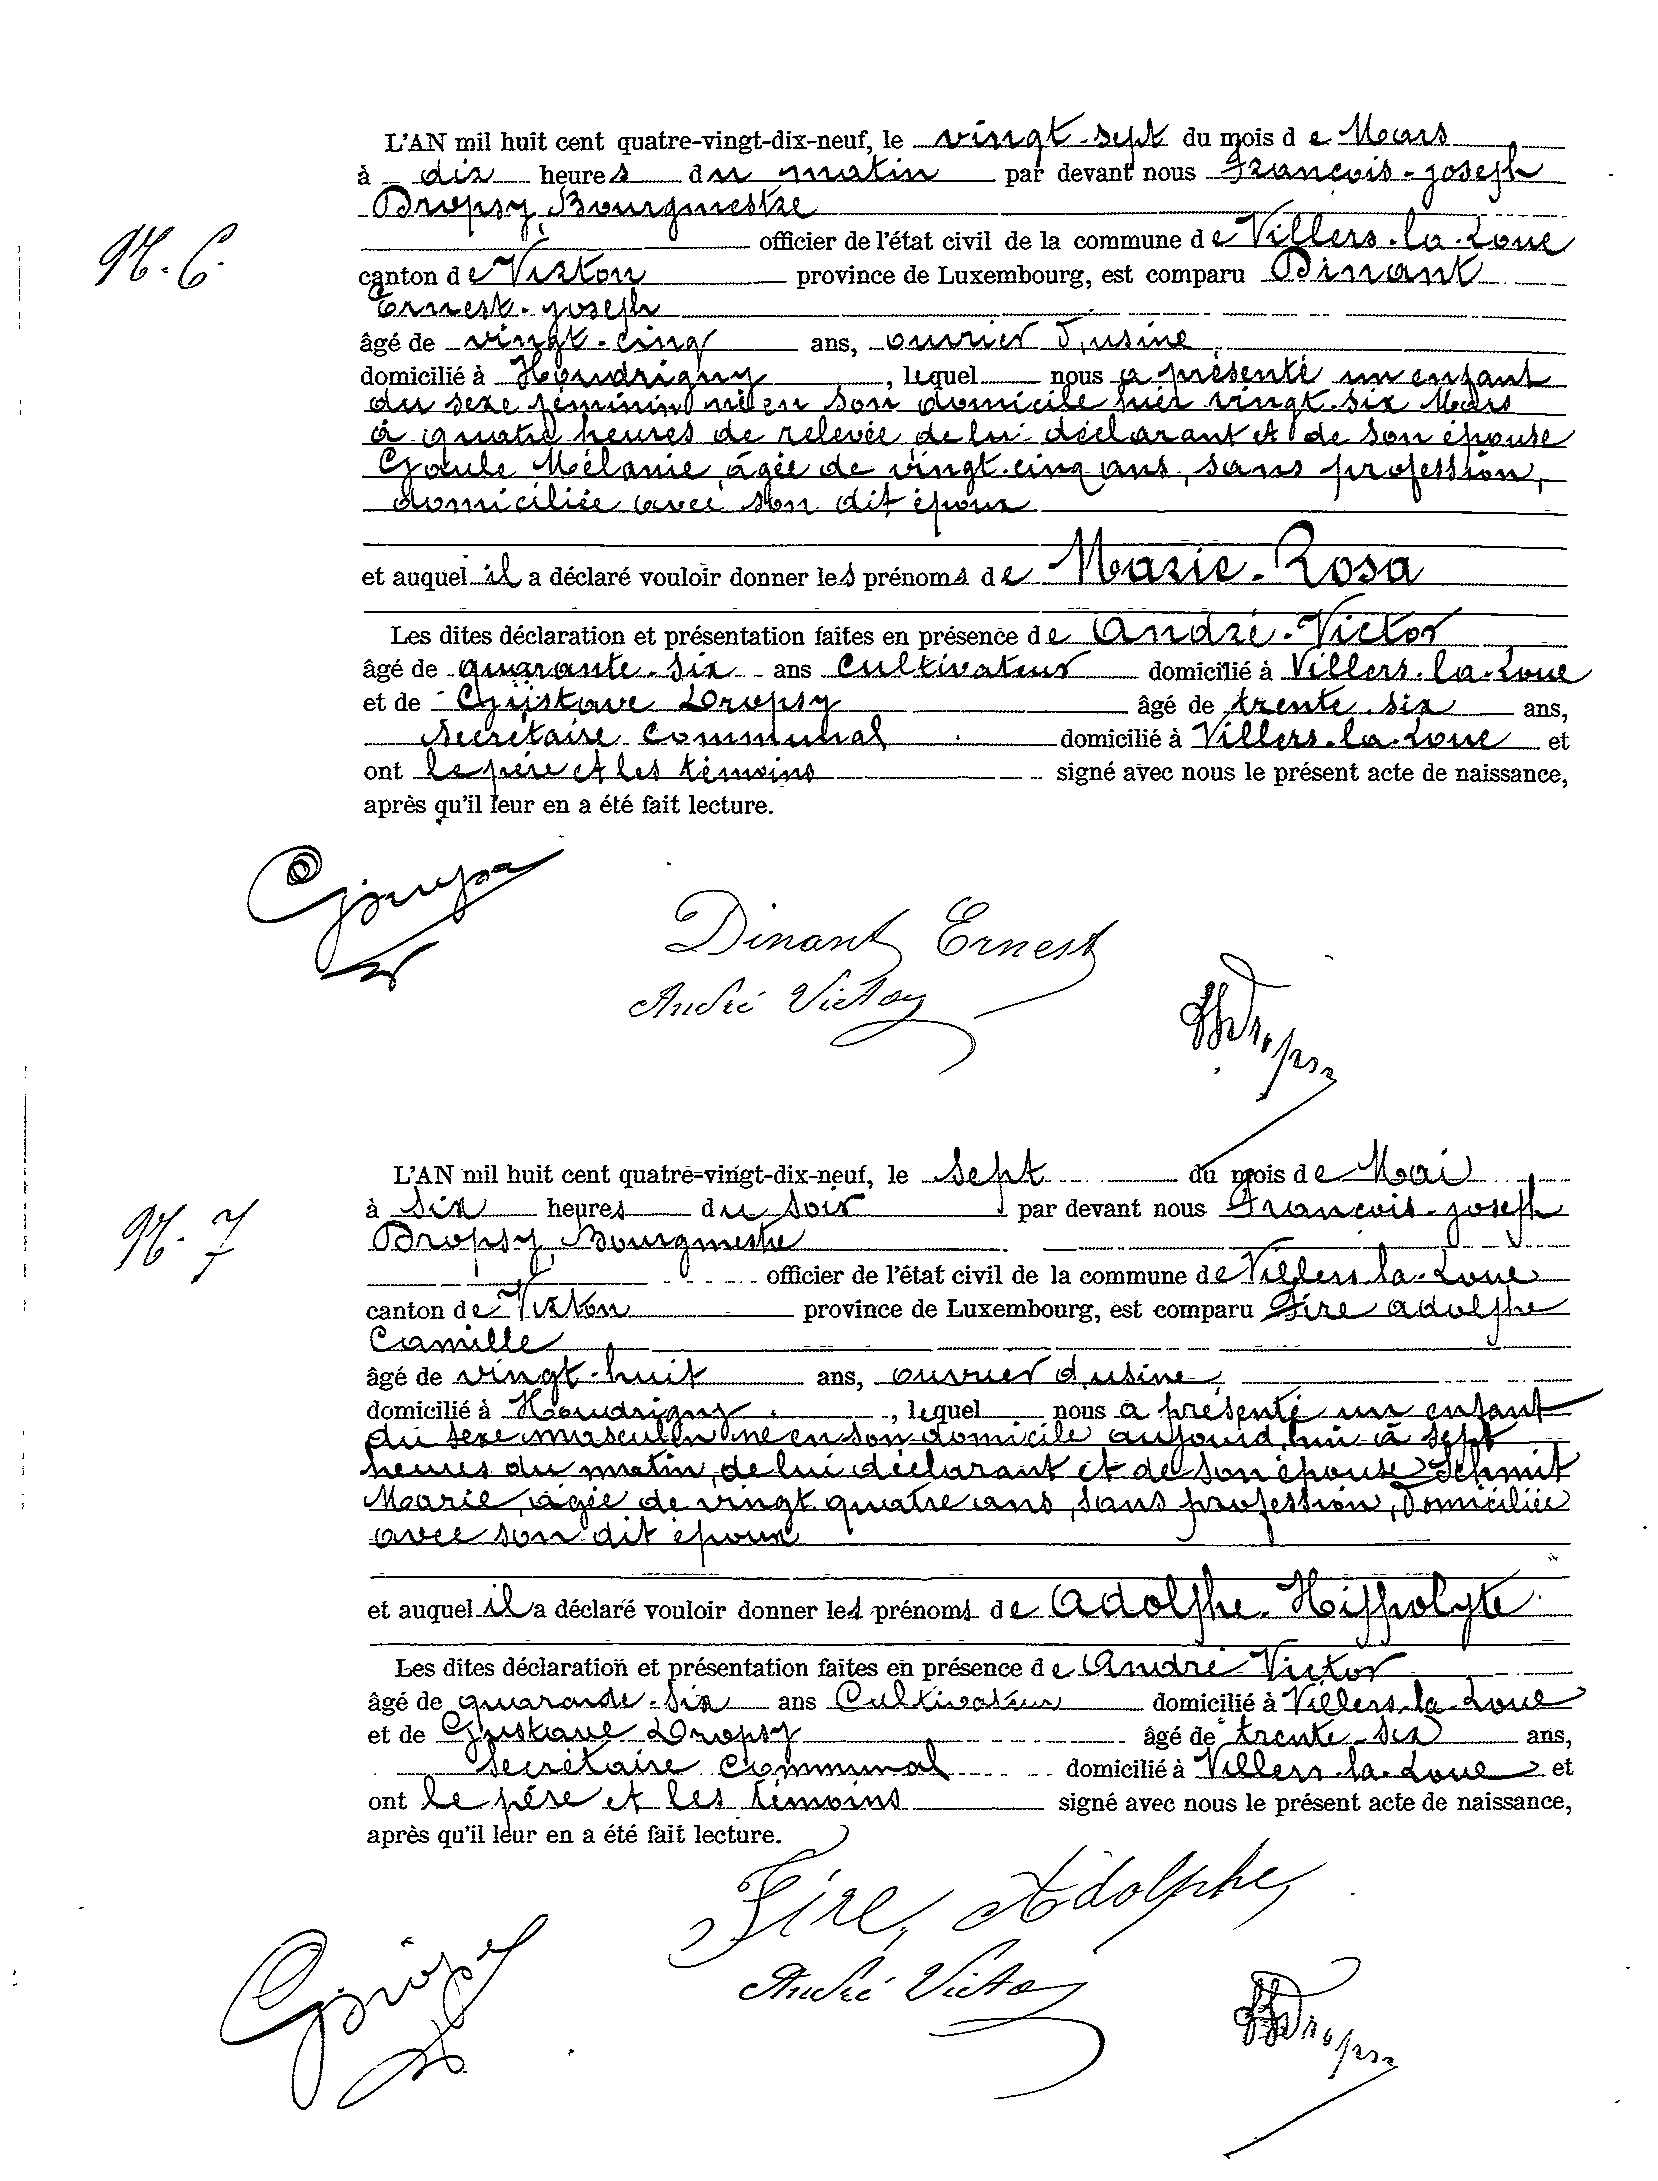 L'AN mil huit cent quatre-vingt-dix-neuf, le vingt-sept du mois de Mars
à dix heures du matin par devant nous François-joseph
Dropsy, Bourgmestre
N. 6.
officier de l'état civil de la commune de Villers-la-Loue
canton de Virton province de Luxembourg, est comparu Dinant
Ernest-joseph
âgé de vingt-cinq ans, ouvrier d'usine,
domicilié à Houdrigny, lequel nous a présenté un enfant
du sexe féminin né en son domicile hier vingt-six Mars
à quatre heures de relevée, de lui déclarant et de son épouse
Goule Mélanie, âgée de vingt-cinq ans, sans profession,
domiciliée avec son dit époux
et auquel il a déclaré vouloir donner les prénoms de Marie-Rosa
Les dites déclaration et présentation faites en présence de André-Victor
âgé de quarante-six ans Cultivateur domicilié à Villers-la-Loue
et de Gustave Dropsy âgé de trente-six ans,
Secrétaire Communal domicilié à Villers-la-Loue et
ont le père et les témoins signé avec nous le présent acte de naissance,
après qu'il leur en a été fait lecture.
Dinant Ernest
André Victor
Dropsy
L'AN mil huit cent quatre-vingt-dix-neuf, le sept du mois de Mai
à six heures du soir par devant nous François-joseph
N. 7
Dropsy, Bourgmestre
officier de l'état civil de la commune de Villers-la-Loue
canton de Virton province de Luxembourg, est comparu Sire Adolphe
Camille
âgé de vingt-huit ans, ouvrier d'usine,
domicilié à Houdrigny, lequel nous a présenté un enfant
du sexe masculin né en son domicile aujourd'hui à sept
heures du matin, de lui déclarant et de son épouse Schmit
Marie, âgée de vingt quatre ans, sans profession, domiciliée
avec son dit époux
et auquel il a déclaré vouloir donner les prénoms de Adolphe-Hippolyte
Les dites déclaration et présentation faites en présence de André-Victor
âgé de quarante-six ans Cultivateur domicilié à Villers-la-Loue
et de Gustave Dropsy âgé de trente-six ans,
Secrétaire Communal domicilié à Villers-la-Loue et
ont le père et les témoins signé avec nous le présent acte de naissance,
après qu'il leur en a été fait lecture.
Sire, Adolphe
André Victor
Dropsy